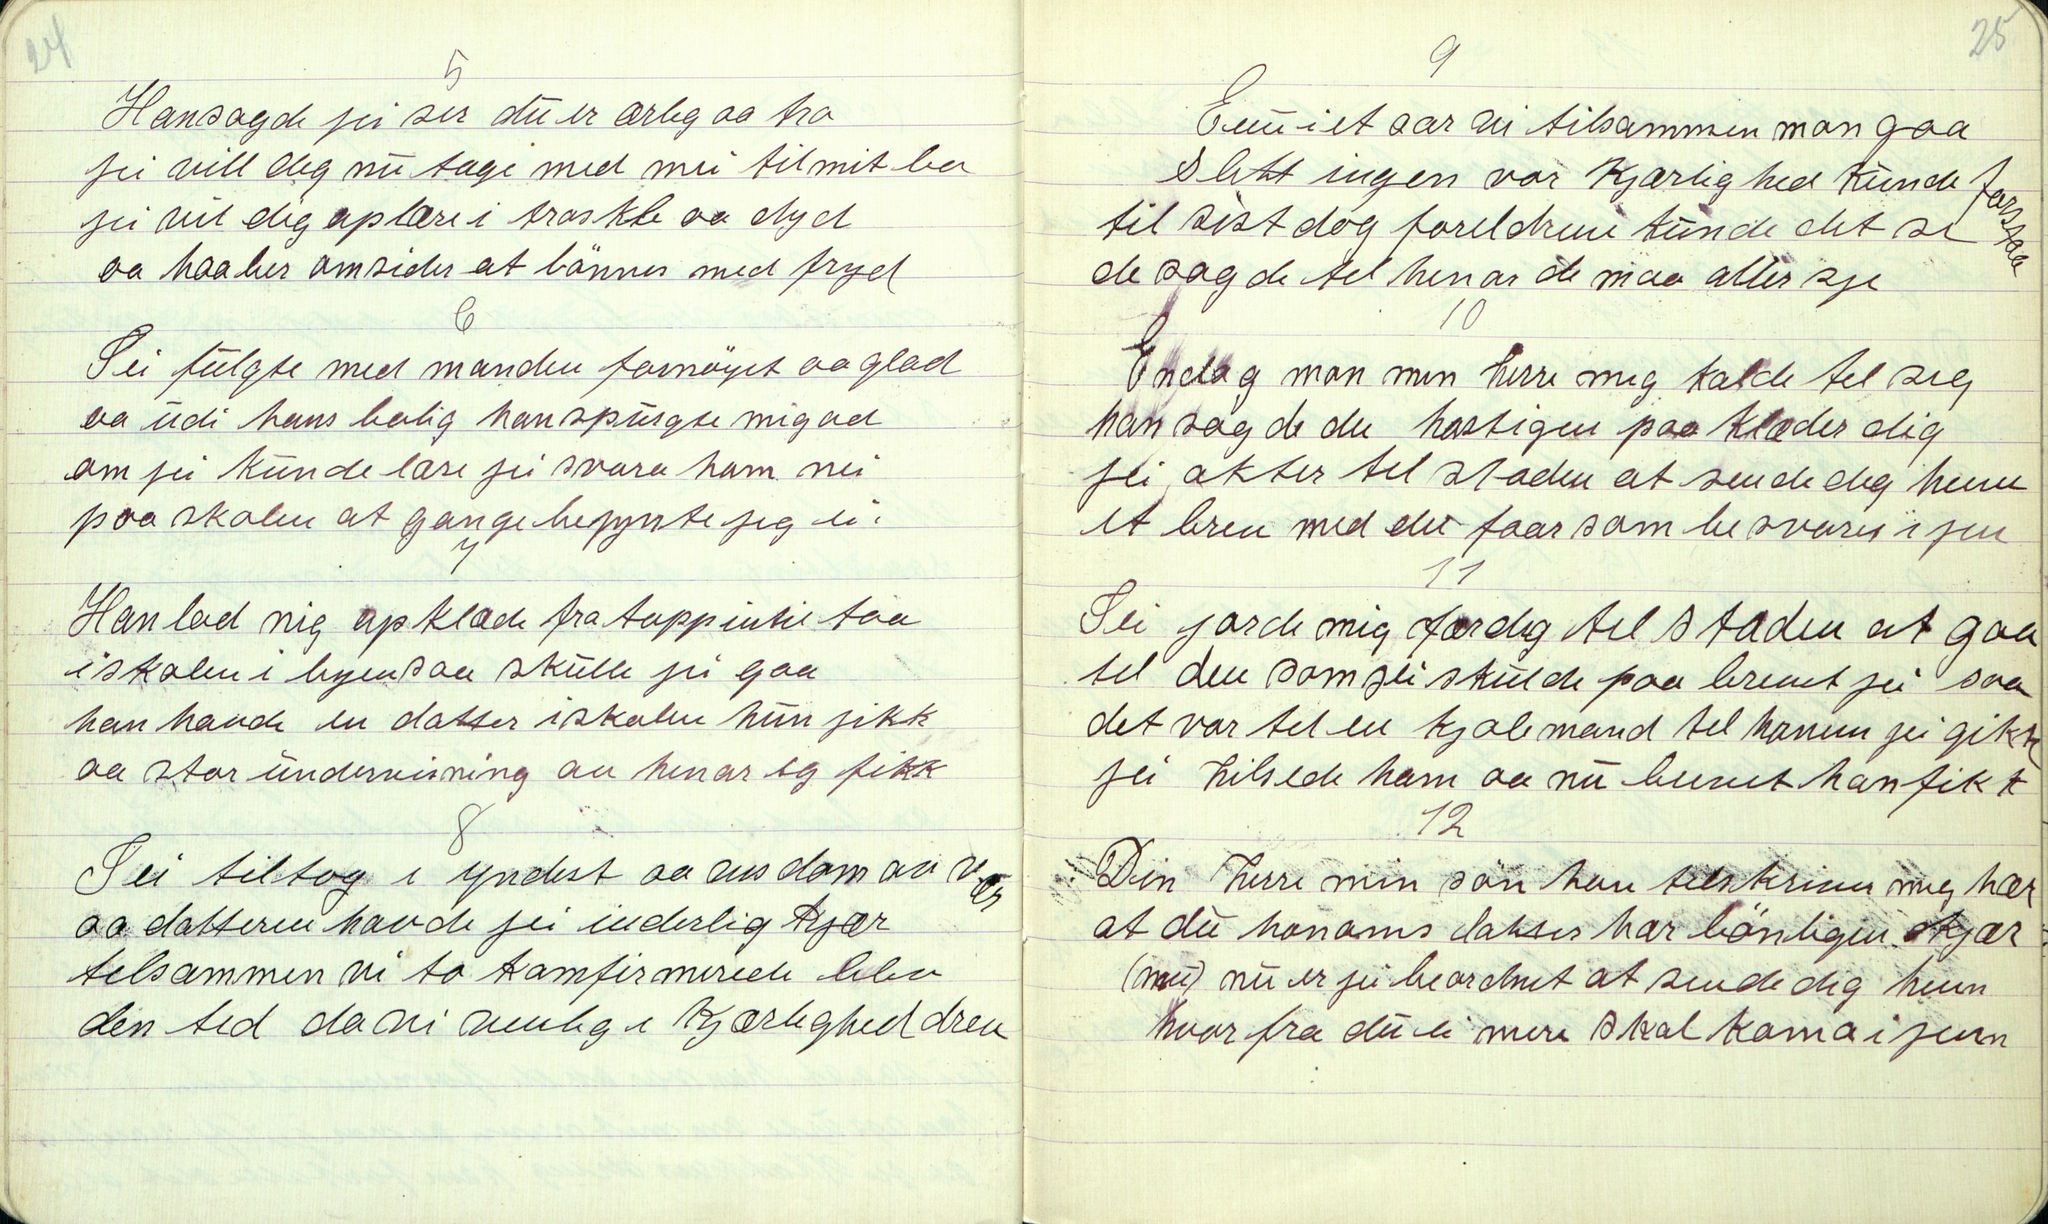 24
5
Han sagde jei ser du er ærlig aa tro
jei vill dig nu tage med mei til mit bo
jei vil dig aplære i troskb aa dyd
aa haaber omsider at lönnes med fryd
6
Jei fulgte med manden fornöyet aa glad
aa udi hans bolig han spurgte mig ad
om jei kunde lære jei svara ham nei
paa skolen at gange begynte jeg ei.
7
Han lod mig apklæde fra topp intil taa
i skolen i byen saa skulle jei gaa
han havde en datter i skolen hun jikk
aa stor undervisning av henar eg fikk
8
Jei tiltog i yndest aa visdom aa
aa datteren havde jei inderlig kjær
tilsammen vi to komfirmerede blev
den tid da vi venlig i kjærlighed drev
25
9
Enu i et aar vi tilsammen mon gaa
Slett ingen vor kjærlighed kunde forstaa
til sist dog foreldrene kunde det se
de sagde til henar de maa aller sje
10
En dag mon min herre mig kalde til sig
han sagde du hastigen paa klæder dig
jei akter til staden at sende dig henn
et brev med du faar som besvares ijen
11
Jei jorde mig færdig til staden at gaa
til den som jei skulde paa brevet jei saa
det var til en kjolemand til hanem jei gikk
jei hilsede ham aa nu brevet han fikk
12
Din herre min sön han tilskriver mig her
at du honoms datter har lönligen kjær
(mei) nu er jei beordret at sende dig henn
hvor fra du ei mere skal koma ijenn